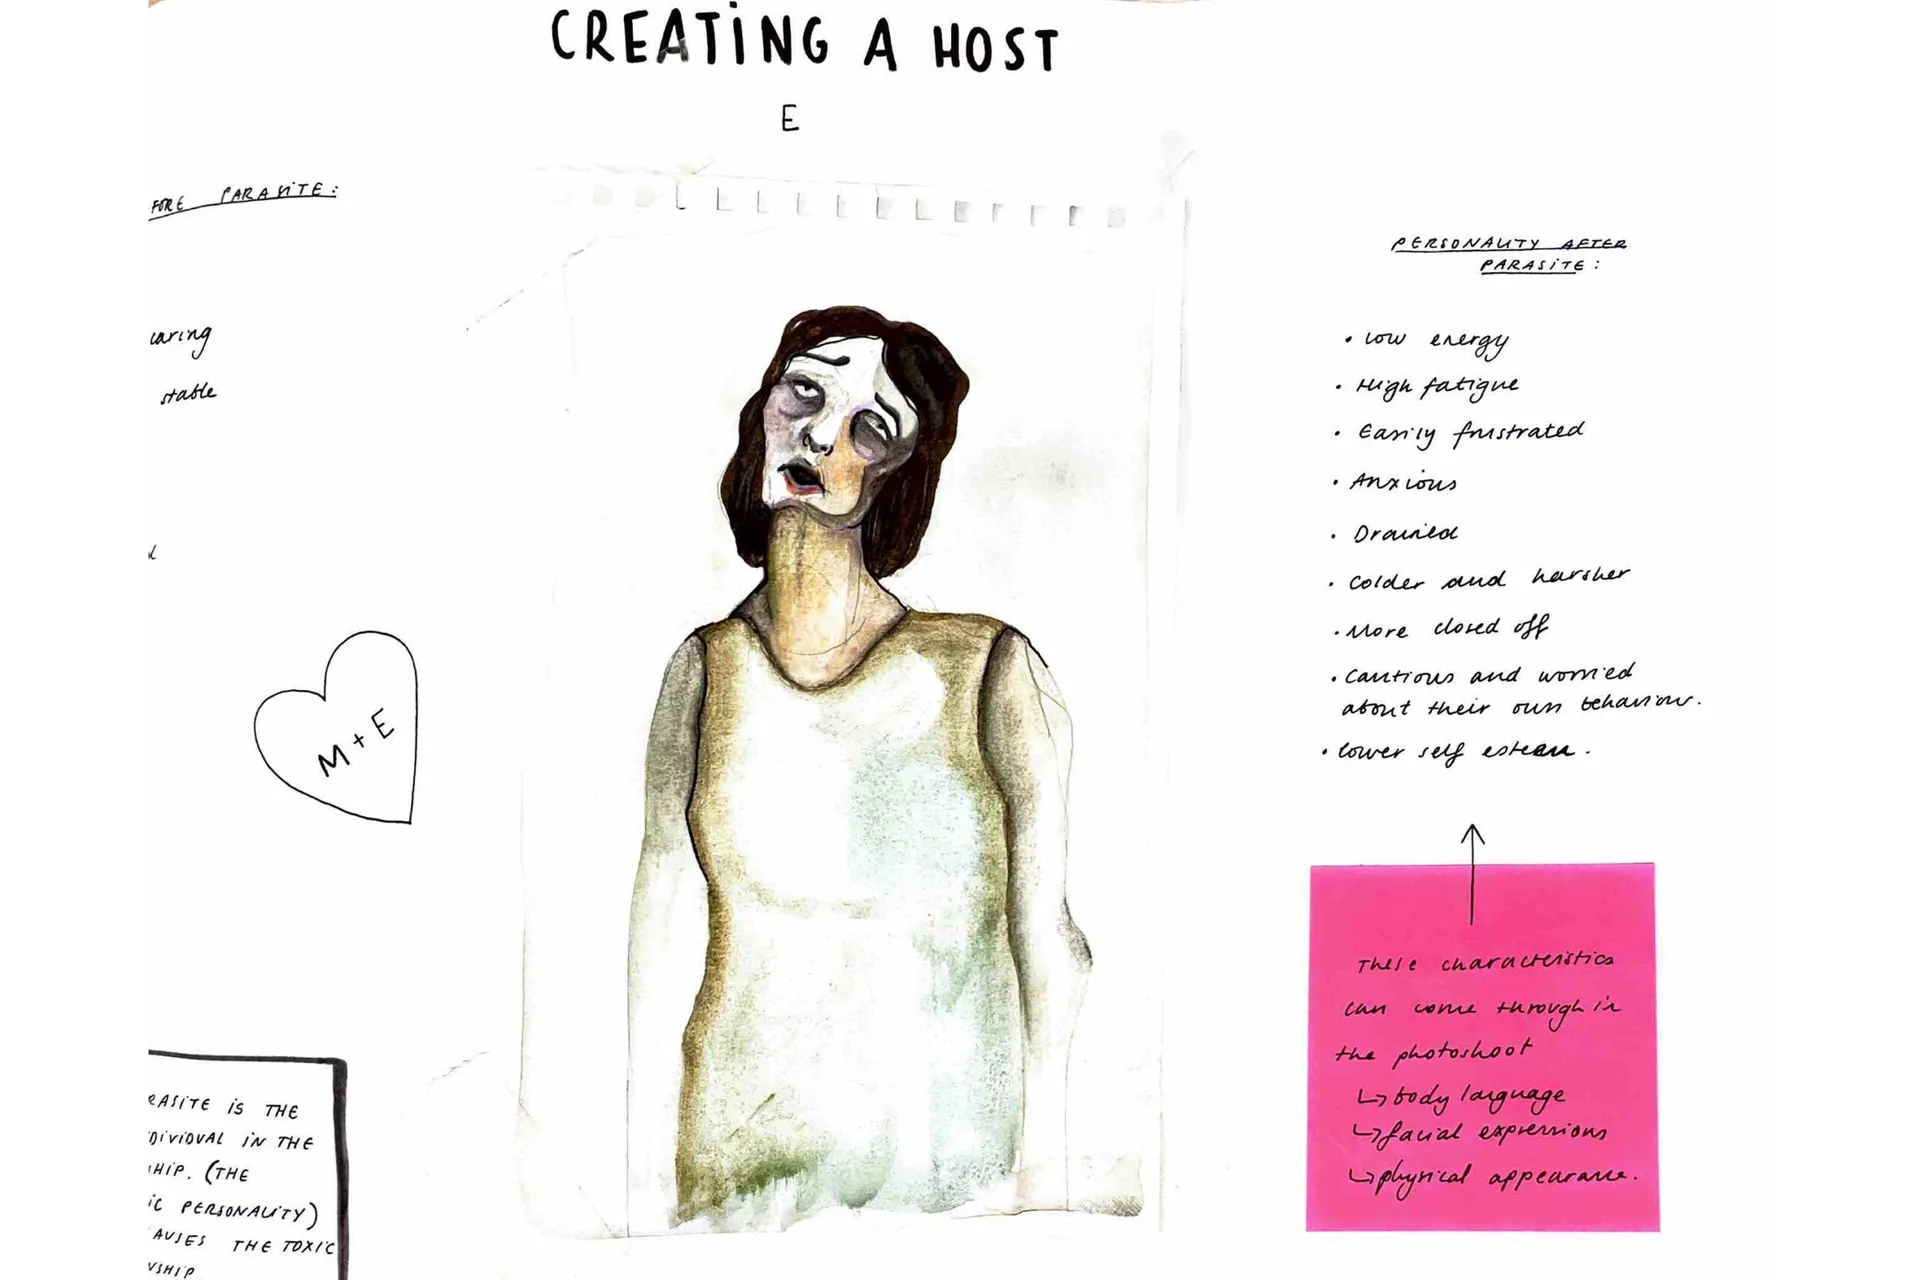 CREATING A HOST
E
FORE PARASITE:
caring
stable
M + E
RASITE IS THE
DIVIDUAL IN THE
HIP. (THE
IC PERSONALITY)
AUSES THE TOXIC
NSHIP
PERSONALITY AFTER
PARASITE:
• Low energy
• High fatigue
• Easily frustrated
• Anxious
• Drained
• Colder and harsher
• More closed off
• Cautious and worried
about their own behaviour.
• lower self esteem.
These characteristics
can come through in
the photoshoot
↳ body language
↳ facial expressions
↳ physical appearance.